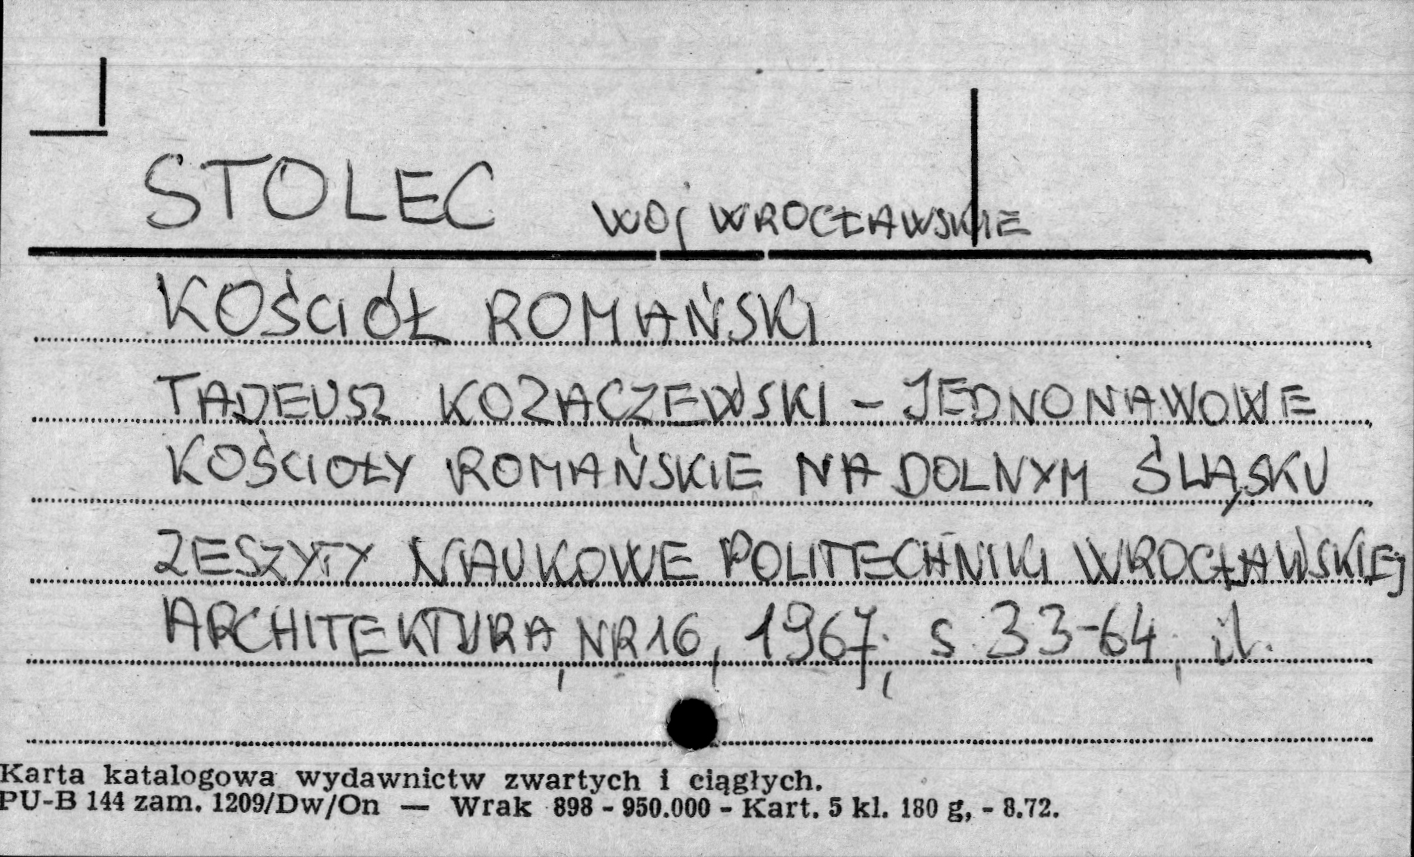 STOLEC woj WROCŁAWSKIE
KOŚCIÓŁ ROMAŃSKI
TADEUSZ KOZACZEWSKI – JEDNONAWOWE
KOŚCIOŁY ROMAŃSKIE NA DOLNYM ŚLĄSKU
ZESZYTY NAUKOWE POLITECHNIKI WROCŁAWSKIEJ
ARCHITEKTURA, NR 16, 1967; s. 33-64, il.
Karta katalogowa wydawnictw zwartych i ciągłych.
PU-B 144 zam. 1209/Dw/On — Wrak 898 - 950.000 - Kart. 5 kl. 180 g, - 8.72.